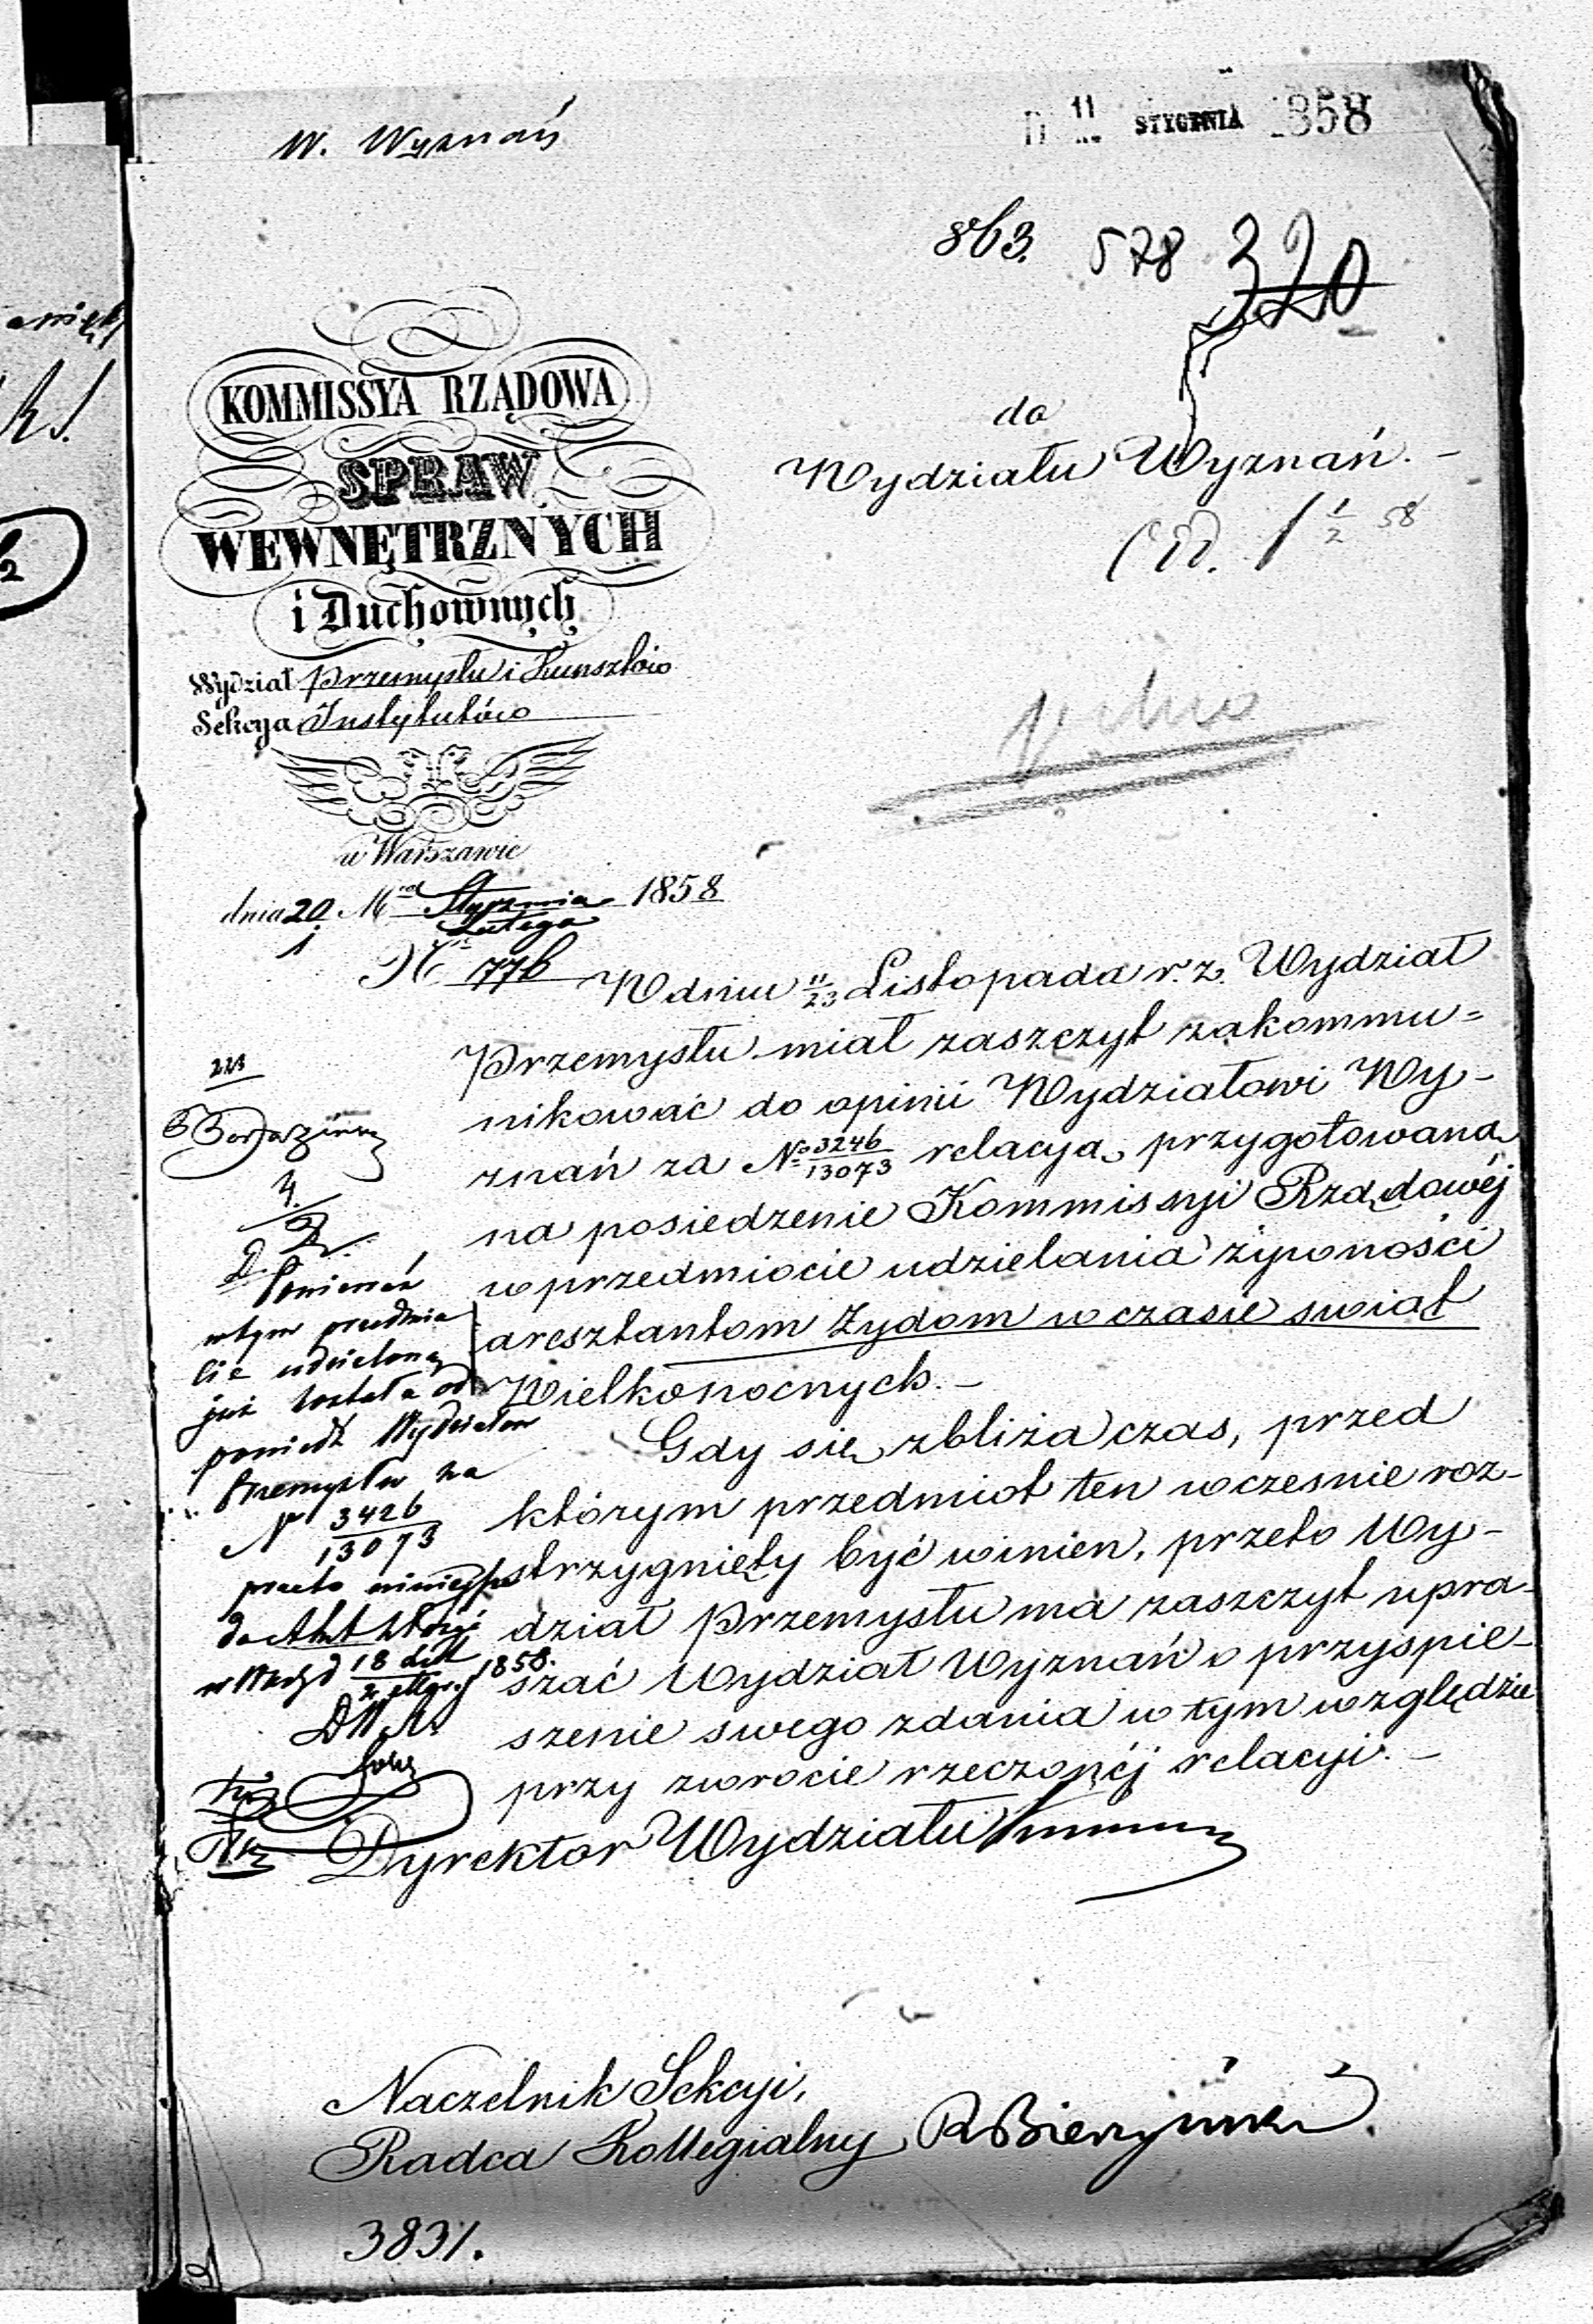 W. Wyznań
11 STYCZNIA 1858
863. 578 320
KOMMISSYA RZĄDOWA
SPRAW
WEWNĘTRZNYCH
i Duchownych
Wydział Przemysłu i Kunsztów
Sekcya Instytutów
w Warszawie
dnia 20 Mca Stycznia 1858
1 Lutego
No 776
do
Wydziału Wyznań. -
1/2 58
W dniu 11/23 Listopada r. z. Wydział
Przemysłu miał zaszczyt zakommu=
nikować do opinii Wydziałowi Wy-
znań za No 3246/13073 relacyą, przygotowaną
na posiedzenie Kommissyi Rządowéj
w przedmiocie udzielania żywności
aresztantom Żydom w czasie swiąt
Wielkonocnych. -
Gdy się zbliża czas, przed
którym przedmiot ten wczesnie roz-
strzygnięty być winien, przeto Wy-
dział Przemysłu ma zaszczyt upra-
szać Wydział Wyznań o przyspie-
szenie swego zdania w tym względzie
przy zwrocie rzeczonéj relacyi. -
Dyrektor Wydziału
Ponieważ
w tym przedmio
cie udzieloną
już została od
powiedź Wydziałow
Przemysłu na
N 3426/13073
przeto niniejsze
do Akt złożyć
1858.
Naczelnik Sekcyi,
Radca Kollegialny
3831.